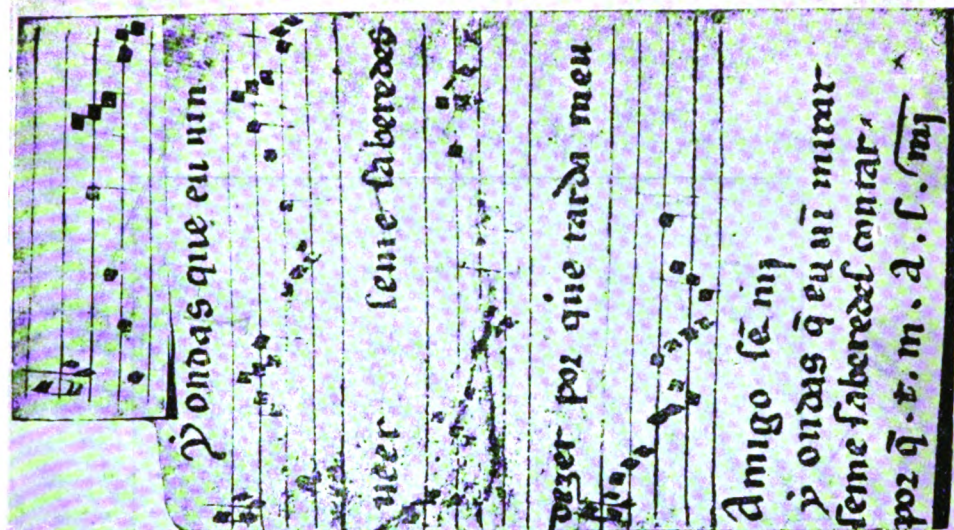 y ondas que eu uin
ueer ſeme ſaberedes
dezer por que tarda meu
Amigo ſē mj
y ondas q̄ eu uī mirar
ſeme ſaberedeſ contar.
por q̄ .t. m. a. ſ. mj